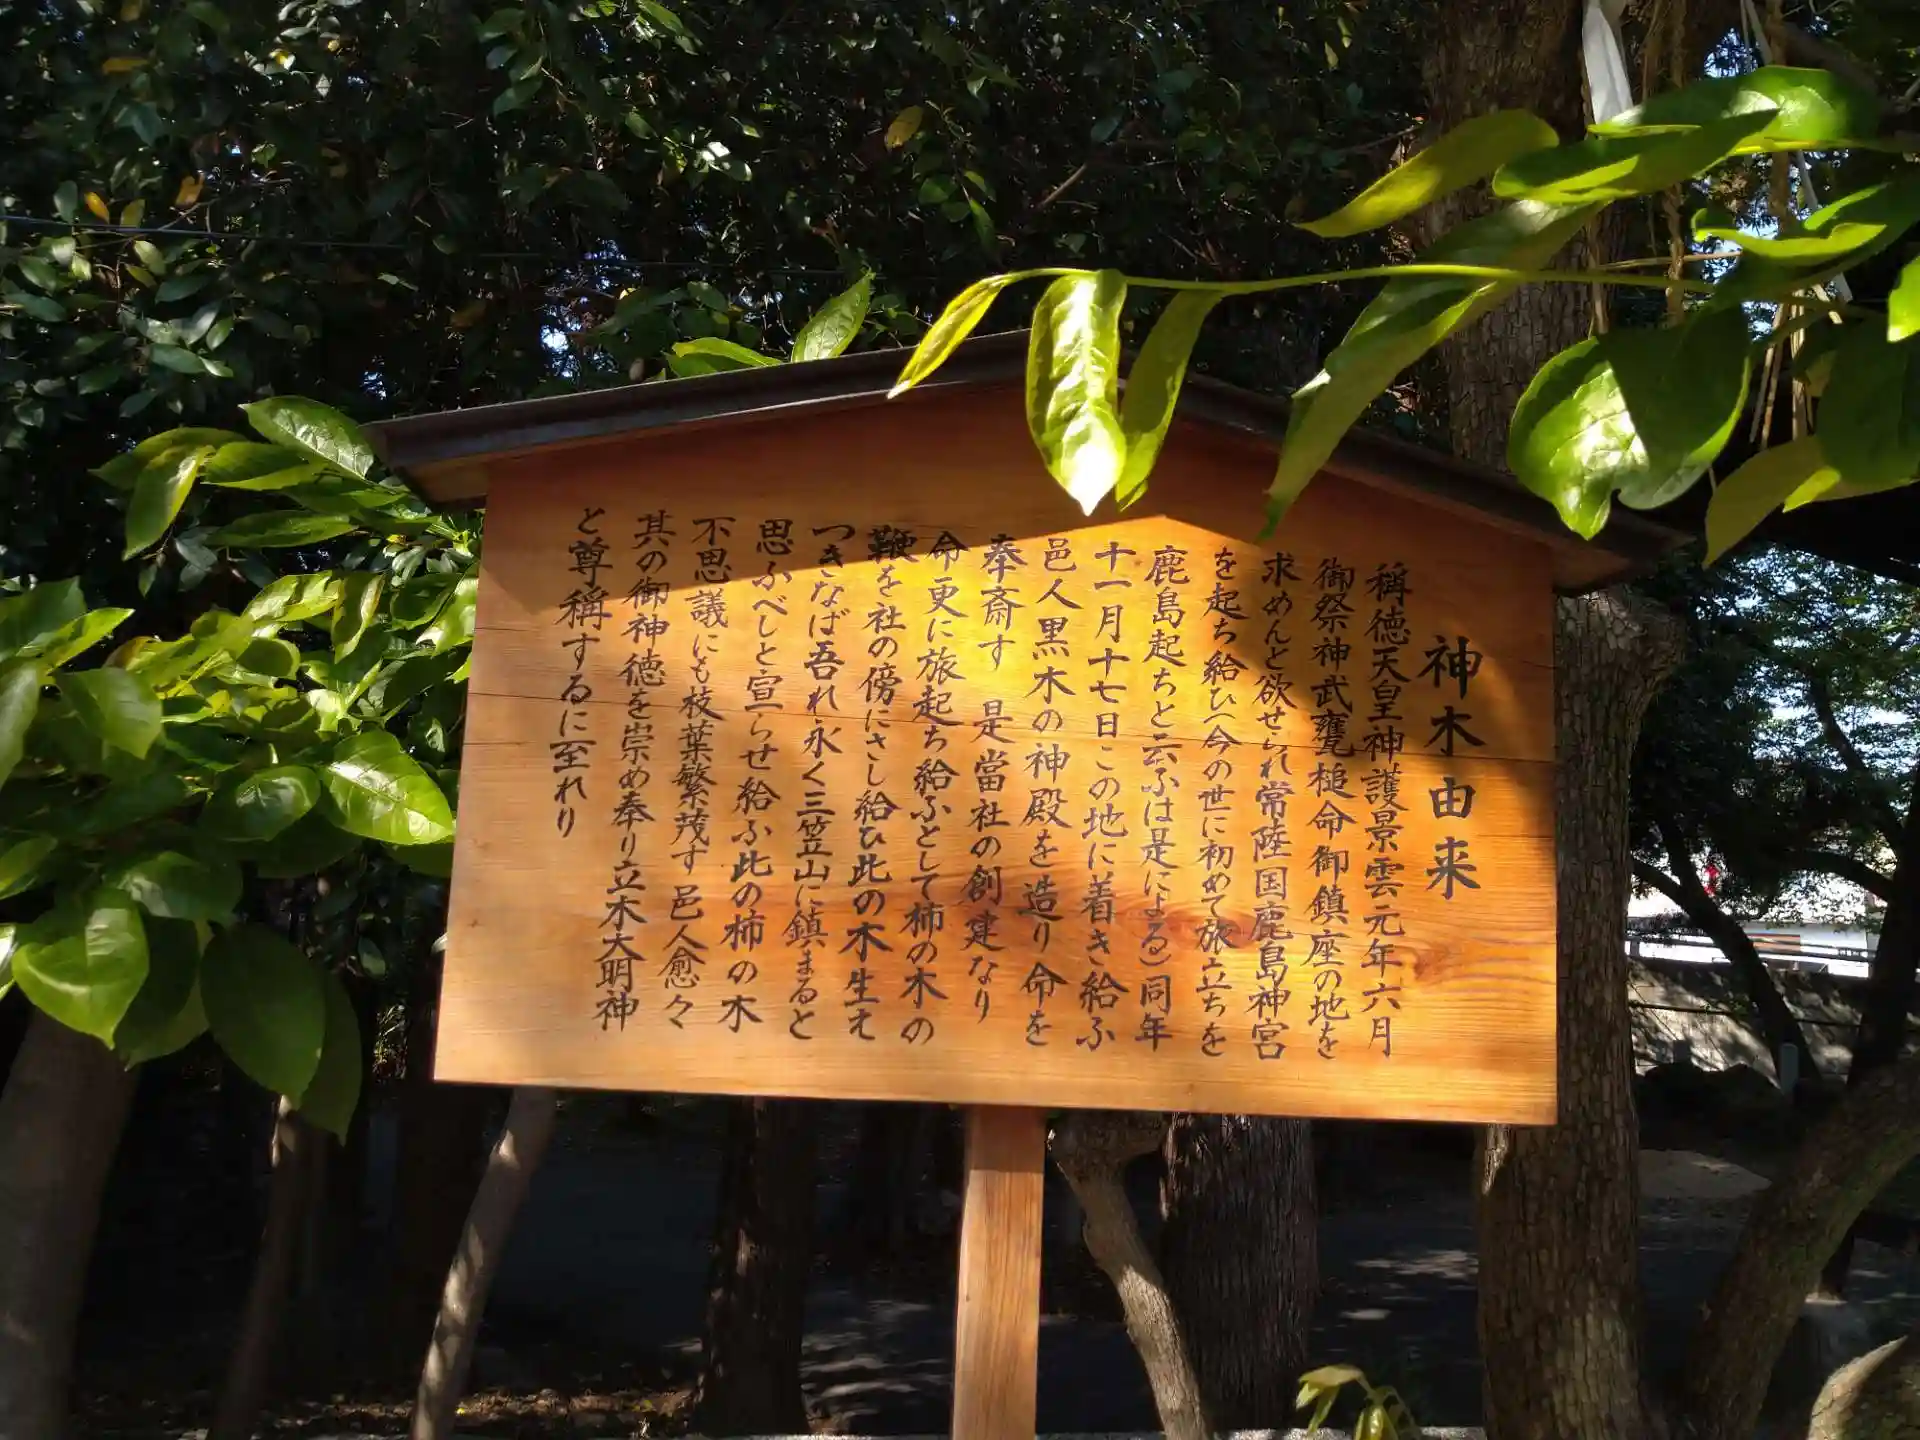 神木由来
稱徳天皇神護景雲元年六月
御祭神武甕槌命御鎮座の地を
求めんと欲せられ常陸国鹿島神宮
を起ち給ひ(今の世に初めて旅立ちを
鹿島起ちと云ふは是による)同年
十一月十七日この地に着き給ふ
邑人黒木の神殿を造り命を
奉斎す 是當社の創建なり
命更に旅起ち給ふとして柿の木の
鞭を社の傍にさし給ひ此の木生え
つきなば吾れ永く三笠山に鎮まると
思ふべしと宣らせ給ふ此の柿の木
不思議にも枝葉繁茂す 邑人愈々
其の御神徳を崇め奉り立木大明神
と尊稱するに至れり